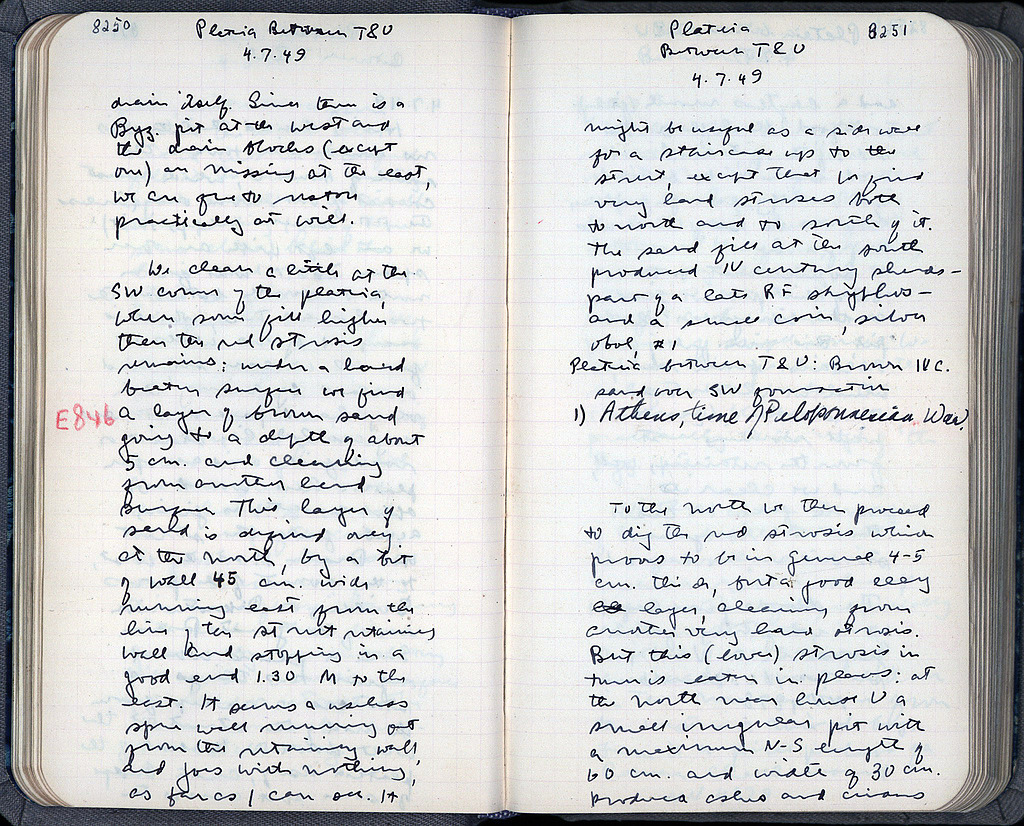 8250
Plateia Between T&U
4.7.49
drain itself. Since there is a
Byz. pit at the west and
the drain blocks (except
one) are missing at the east,
we are free to restore
practically at will.
We clean a little at the
SW corner of the plateia,
where some fill higher
than the red strosis
remains: under a hard
beaten surface we find
E846
a layer of brown sand
going to a depth of about
5 cm. and cleaning
from another hard
surface. This layer of
sand is defined over
at the north, by a bit
of wall 45 cm. wide
running east from the
line of the street retaining
wall and stopping in a
good end 1.30 M to the
east. It seems a useless
spur wall running out
from the retaining wall,
and goes with nothing,
as far as I can see. It
Plateia
8251
Between T&U
4.7.49
might be useful as a side wall
for a staircase up to the
street, except that we find
very hard stroses both
to north and to south of it.
The sand fill at the south
produced IV century sherds -
part of a late RF skyphos -
and a small coin, silver
obol, #1.
Plateia between T&U: Brown IV c.
sand over SW foundation
1) Athens, time of Peloponnesian War.
To the north we then proceed
to dig the red strosis which
proves to be in general 4-5
cm. thick, but a good clay
layer, cleaning from
another very hard strosis.
But this (lower) strosis in
turn is eaten in places: at
the north near house U a
small irregular pit with
a maximum N-S length of
60 cm. and width of 30 cm.
produces ashes and